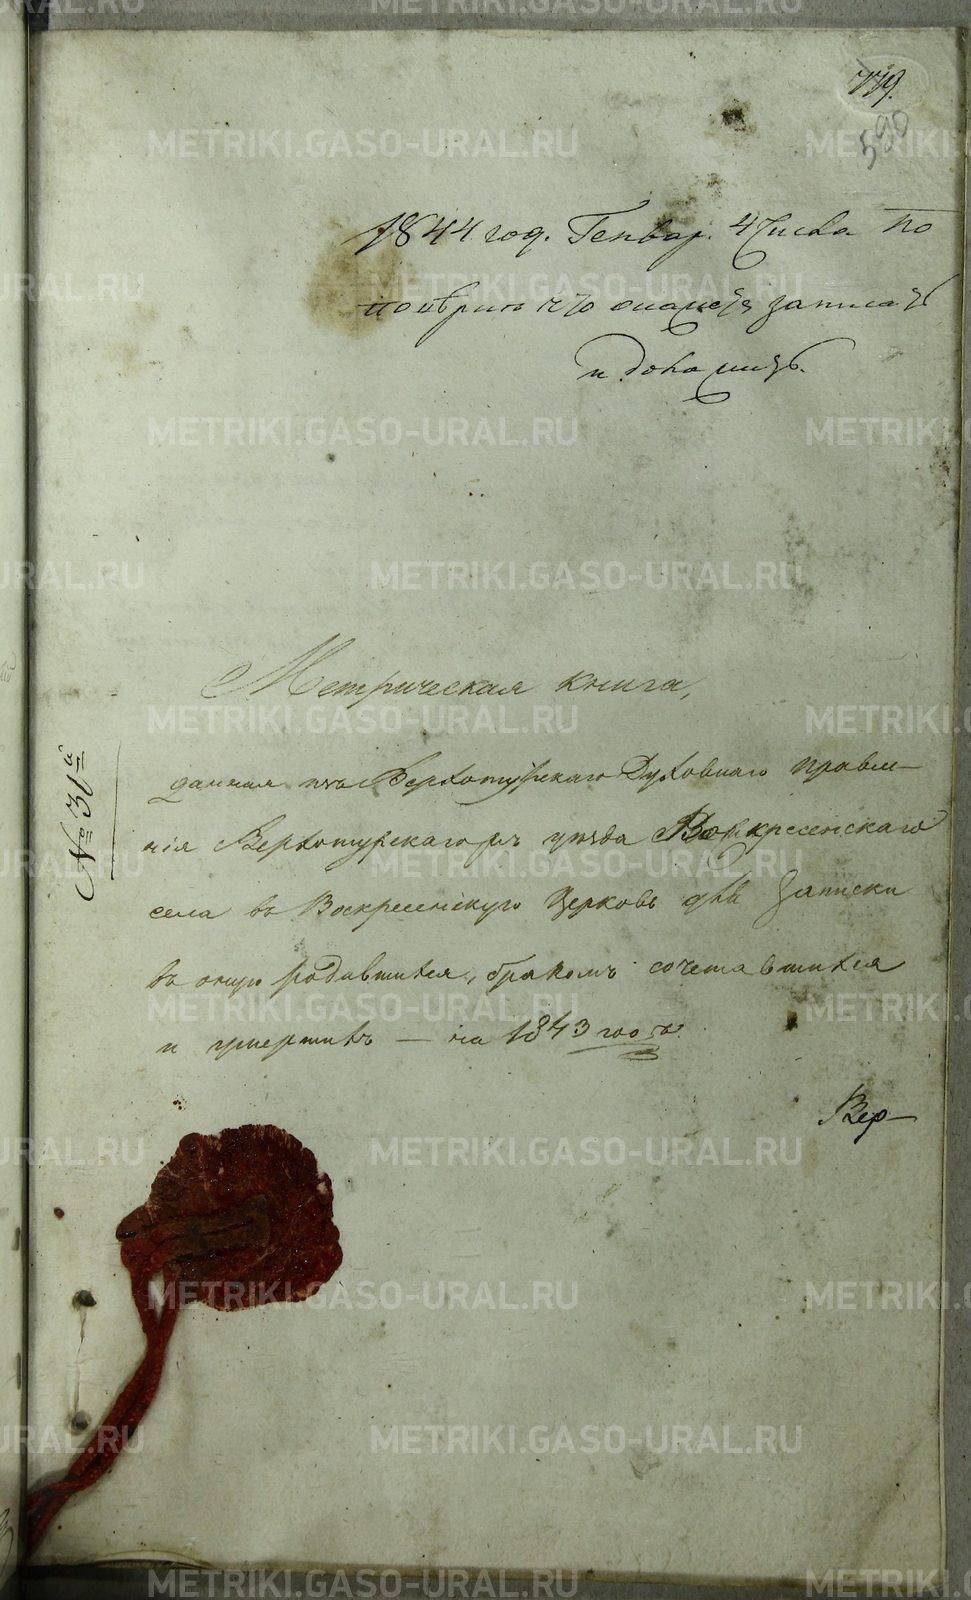 779.
590
1844 год. Генвар. 4 Числа По
записать
и
Метрическая книга,
№ 31й
данная изъ Верхотурскаго Духовнаго правле-
нія Верхотурскаго уѣзда Воскресенскаго
села въ Воскресенскую Церковь для Записки
въ оную родившихся, бракомъ сочетавшихся
и умершихъ — на 1843 годъ.
Вер-
METRIKI.GASO-URAL.RU